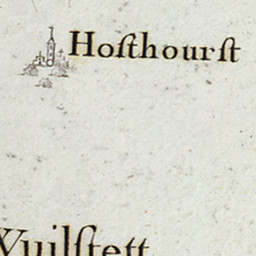 Hoſthourſt
Vuilſtett